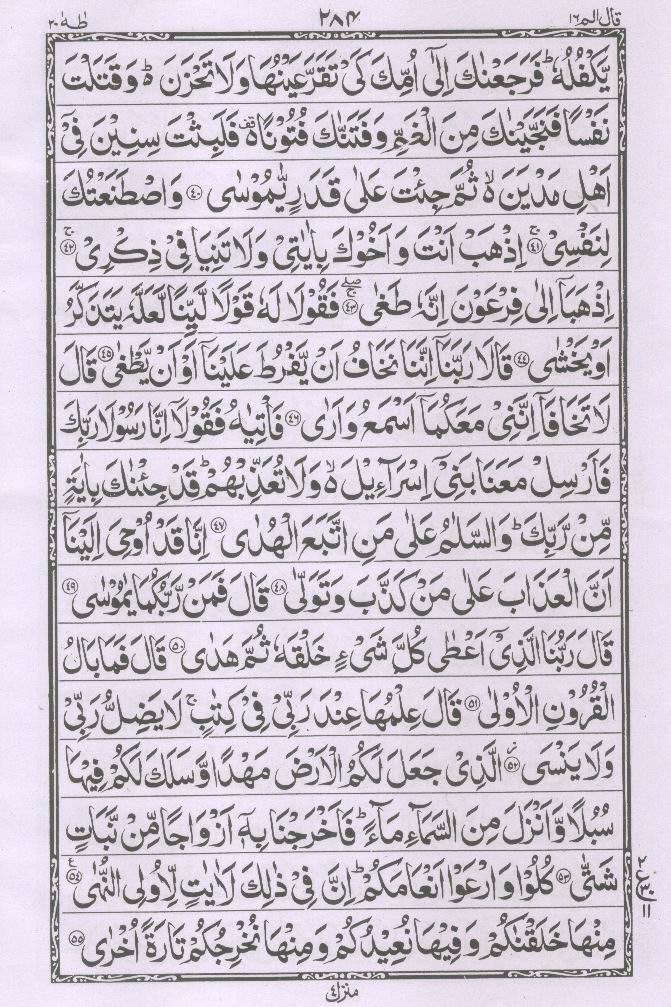 قال الم ١٦ ٢٨٤ طٰهٰ ٢٠
يَّكْفُلُهٗ ؕ فَرَجَعْنٰكَ اِلٰۤى اُمِّكَ كَىْ تَقَرَّ عَيْنُهَا وَلَا تَحْزَنَ ؕ۬ وَقَتَلْتَ
نَفْسًا فَنَجَّيْنٰكَ مِنَ الْغَمِّ وَفَتَنّٰكَ فُتُوْنًا ۫۬ فَلَبِثْتَ سِنِيْنَ فِىْۤ
اَهْلِ مَدْيَنَ ۙ۬ ثُمَّ جِئْتَ عَلٰى قَدَرٍ يّٰمُوْسٰى ﴿۴۰﴾ وَاصْطَنَعْتُكَ
لِنَفْسِىْ ۚ﴿۴۱﴾ اِذْهَبْ اَنْتَ وَ اَخُوْكَ بِاٰيٰتِىْ وَلَا تَنِيَا فِىْ ذِكْرِىْ ۚ﴿۴۲﴾
اِذْهَبَاۤ اِلٰى فِرْعَوْنَ اِنَّهٗ طَغٰى ۚۖ﴿۴۳﴾ فَقُوْلَا لَهٗ قَوْلًا لَّيِّنًا لَّعَلَّهٗ يَتَذَكَّرُ
اَوْ يَخْشٰى ﴿۴۴﴾ قَالَا رَبَّنَاۤ اِنَّنَا نَخَافُ اَنْ يَّفْرُطَ عَلَيْنَاۤ اَوْ اَنْ يَّطْغٰى ﴿۴۵﴾ قَالَ
لَا تَخَافَاۤ اِنَّنِىْ مَعَكُمَاۤ اَسْمَعُ وَاَرٰى ﴿۴۶﴾ فَاْتِيٰهُ فَقُوْلَاۤ اِنَّا رَسُوْلَا رَبِّكَ
فَاَرْسِلْ مَعَنَا بَنِىْۤ اِسْرَآءِيْلَ ۙ۬ وَلَا تُعَذِّبْهُمْ ؕ قَدْ جِئْنٰكَ بِاٰيَةٍ
مِّنْ رَّبِّكَ ؕ وَالسَّلٰمُ عَلٰى مَنِ اتَّبَعَ الْهُدٰى ﴿۴۷﴾ اِنَّا قَدْ اُوْحِىَ اِلَيْنَاۤ
اَنَّ الْعَذَابَ عَلٰى مَنْ كَذَّبَ وَتَوَلّٰى ﴿۴۸﴾ قَالَ فَمَنْ رَّبُّكُمَا يٰمُوْسٰى ﴿۴۹﴾
قَالَ رَبُّنَا الَّذِىْۤ اَعْطٰى كُلَّ شَىْءٍ خَلْقَهٗ ثُمَّ هَدٰى ﴿۵۰﴾ قَالَ فَمَا بَالُ
الْقُرُوْنِ الْاُوْلٰى ﴿۵۱﴾ قَالَ عِلْمُهَا عِنْدَ رَبِّىْ فِىْ كِتٰبٍ ۚ لَا يَضِلُّ رَبِّىْ
وَلَا يَنْسَى ؗ﴿۵۲﴾ الَّذِىْ جَعَلَ لَكُمُ الْاَرْضَ مَهْدًا وَّسَلَكَ لَكُمْ فِيْهَا
سُبُلًا وَّاَنْزَلَ مِنَ السَّمَآءِ مَآءً ؕ فَاَخْرَجْنَا بِهٖۤ اَزْوَاجًا مِّنْ نَّبَاتٍ
شَتّٰى ﴿۵۳﴾ كُلُوْا وَارْعَوْا اَنْعَامَكُمْ ؕ اِنَّ فِىْ ذٰلِكَ لَاٰيٰتٍ لِّاُولِى النُّهٰى ﴿۵۴﴾ ع
مِنْهَا خَلَقْنٰكُمْ وَفِيْهَا نُعِيْدُكُمْ وَمِنْهَا نُخْرِجُكُمْ تَارَةً اُخْرٰى ﴿۵۵﴾
منزل ٤